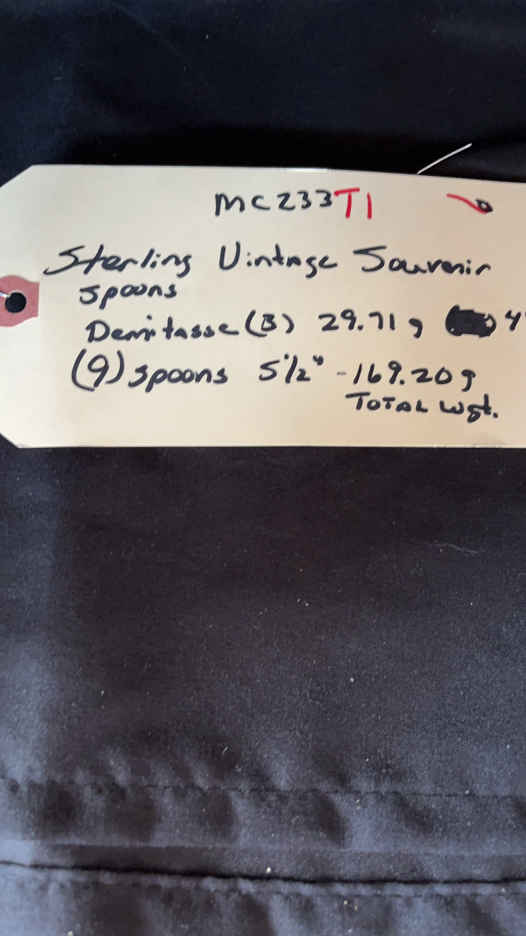 MC233T1
Sterling Vintage Souvenir
Spoons
Demitasse (3) 29.71 g 4"
(9) spoons 5½" - 169.20 g
TOTAL wgt.